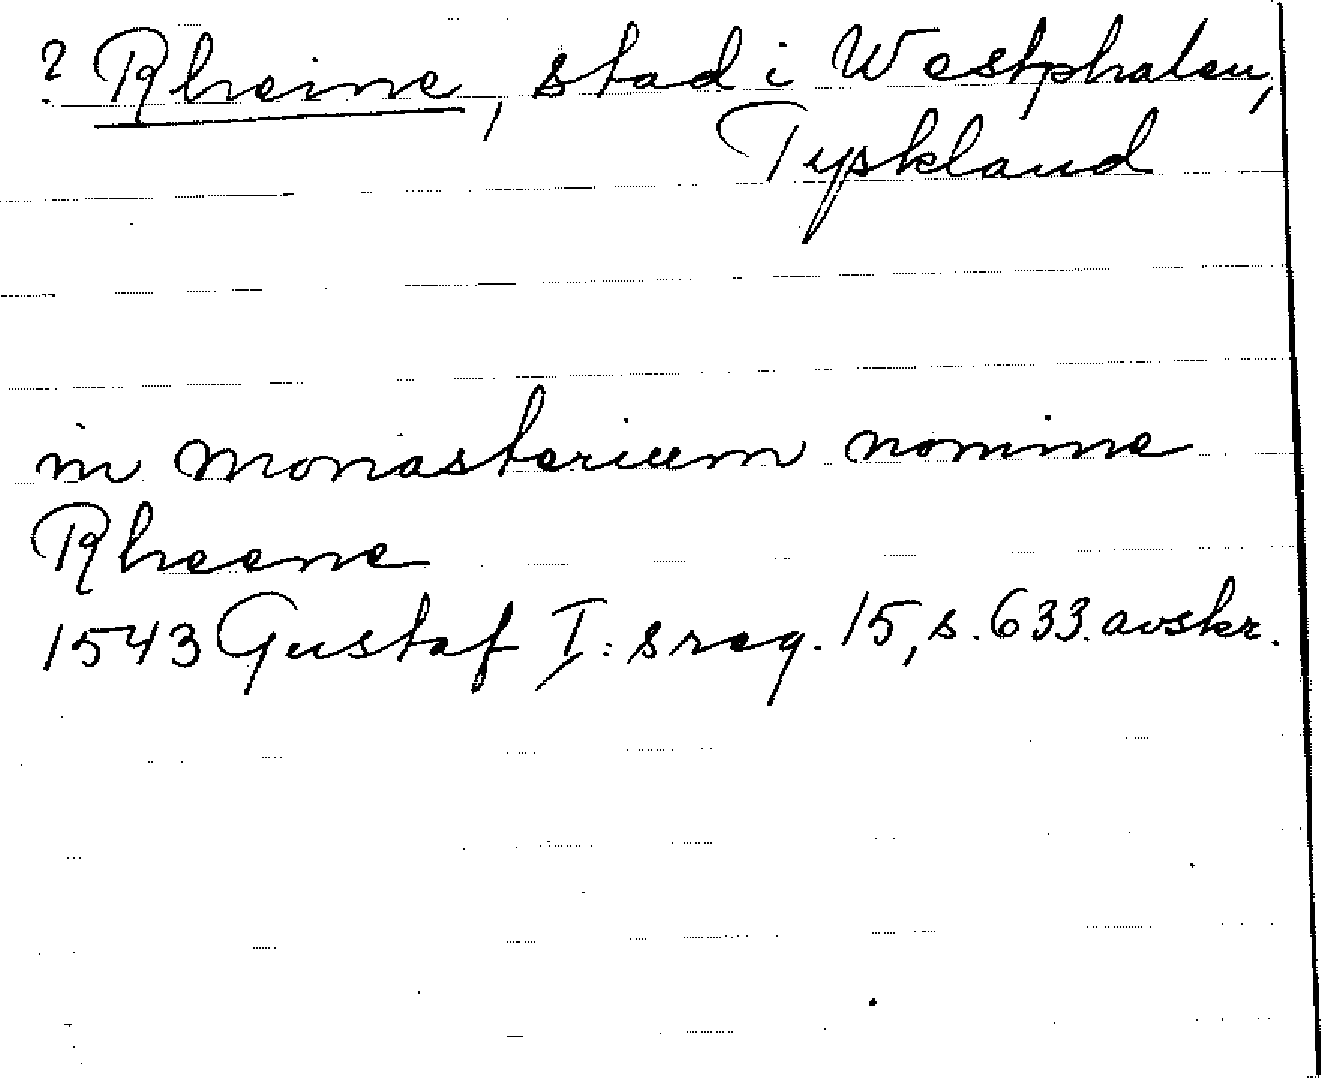 ? Rheine, stad i Westphalen,
Tyskland
in monasterium nomine
Rheene
1543 Gustaf I: s reg. 15, s. 633. avskr.